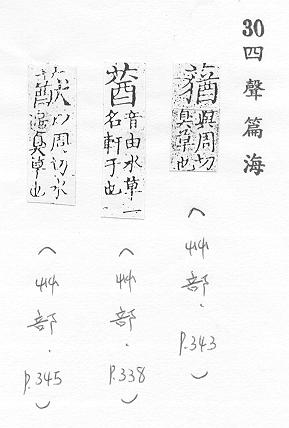 30 四聲篇海
與周切
臭草也
(艸部.P.343)
音由水草一
名軒于也
(艸部.P.338)
以周切水
邊臭草也
(艸部.P.345)